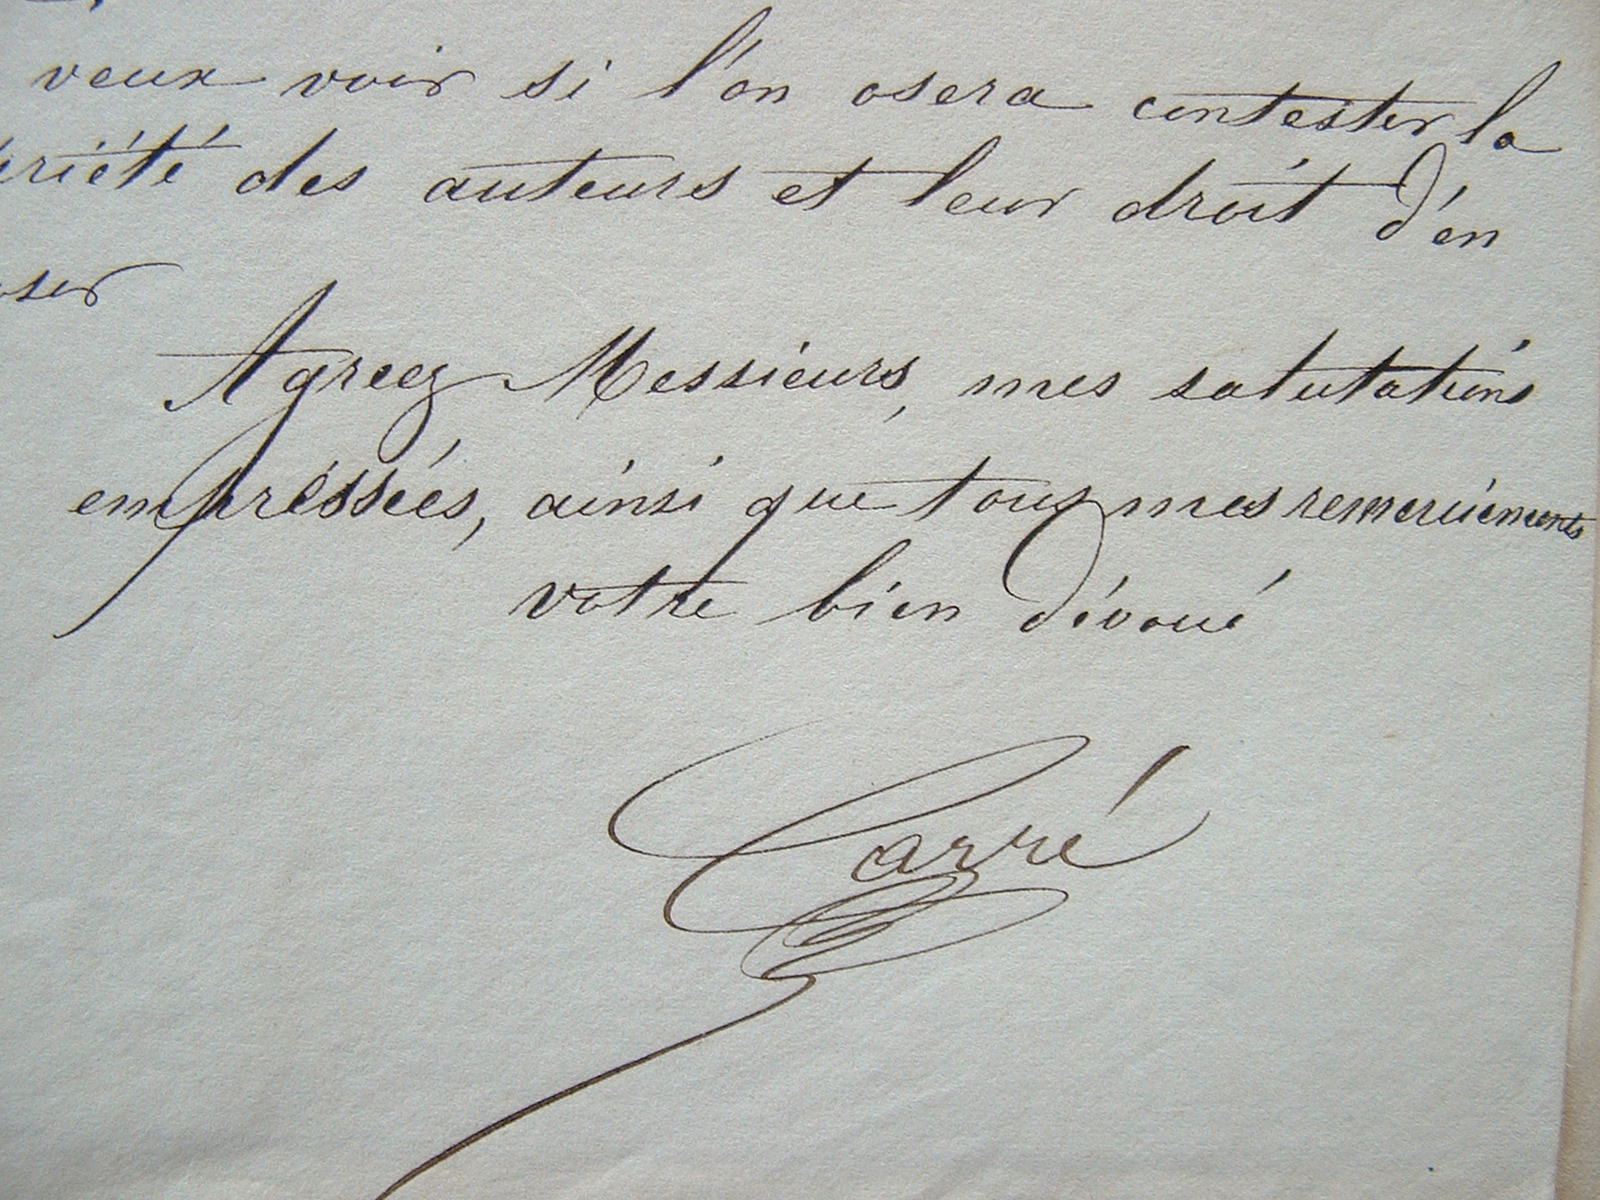 veux voir si l'on osera contester la
priété des auteurs et leur droit d'en
oser
Agreez Messieurs, mes salutations
empréssées, ainsi que tous mes remerciements
votre bien dévoué
Carré